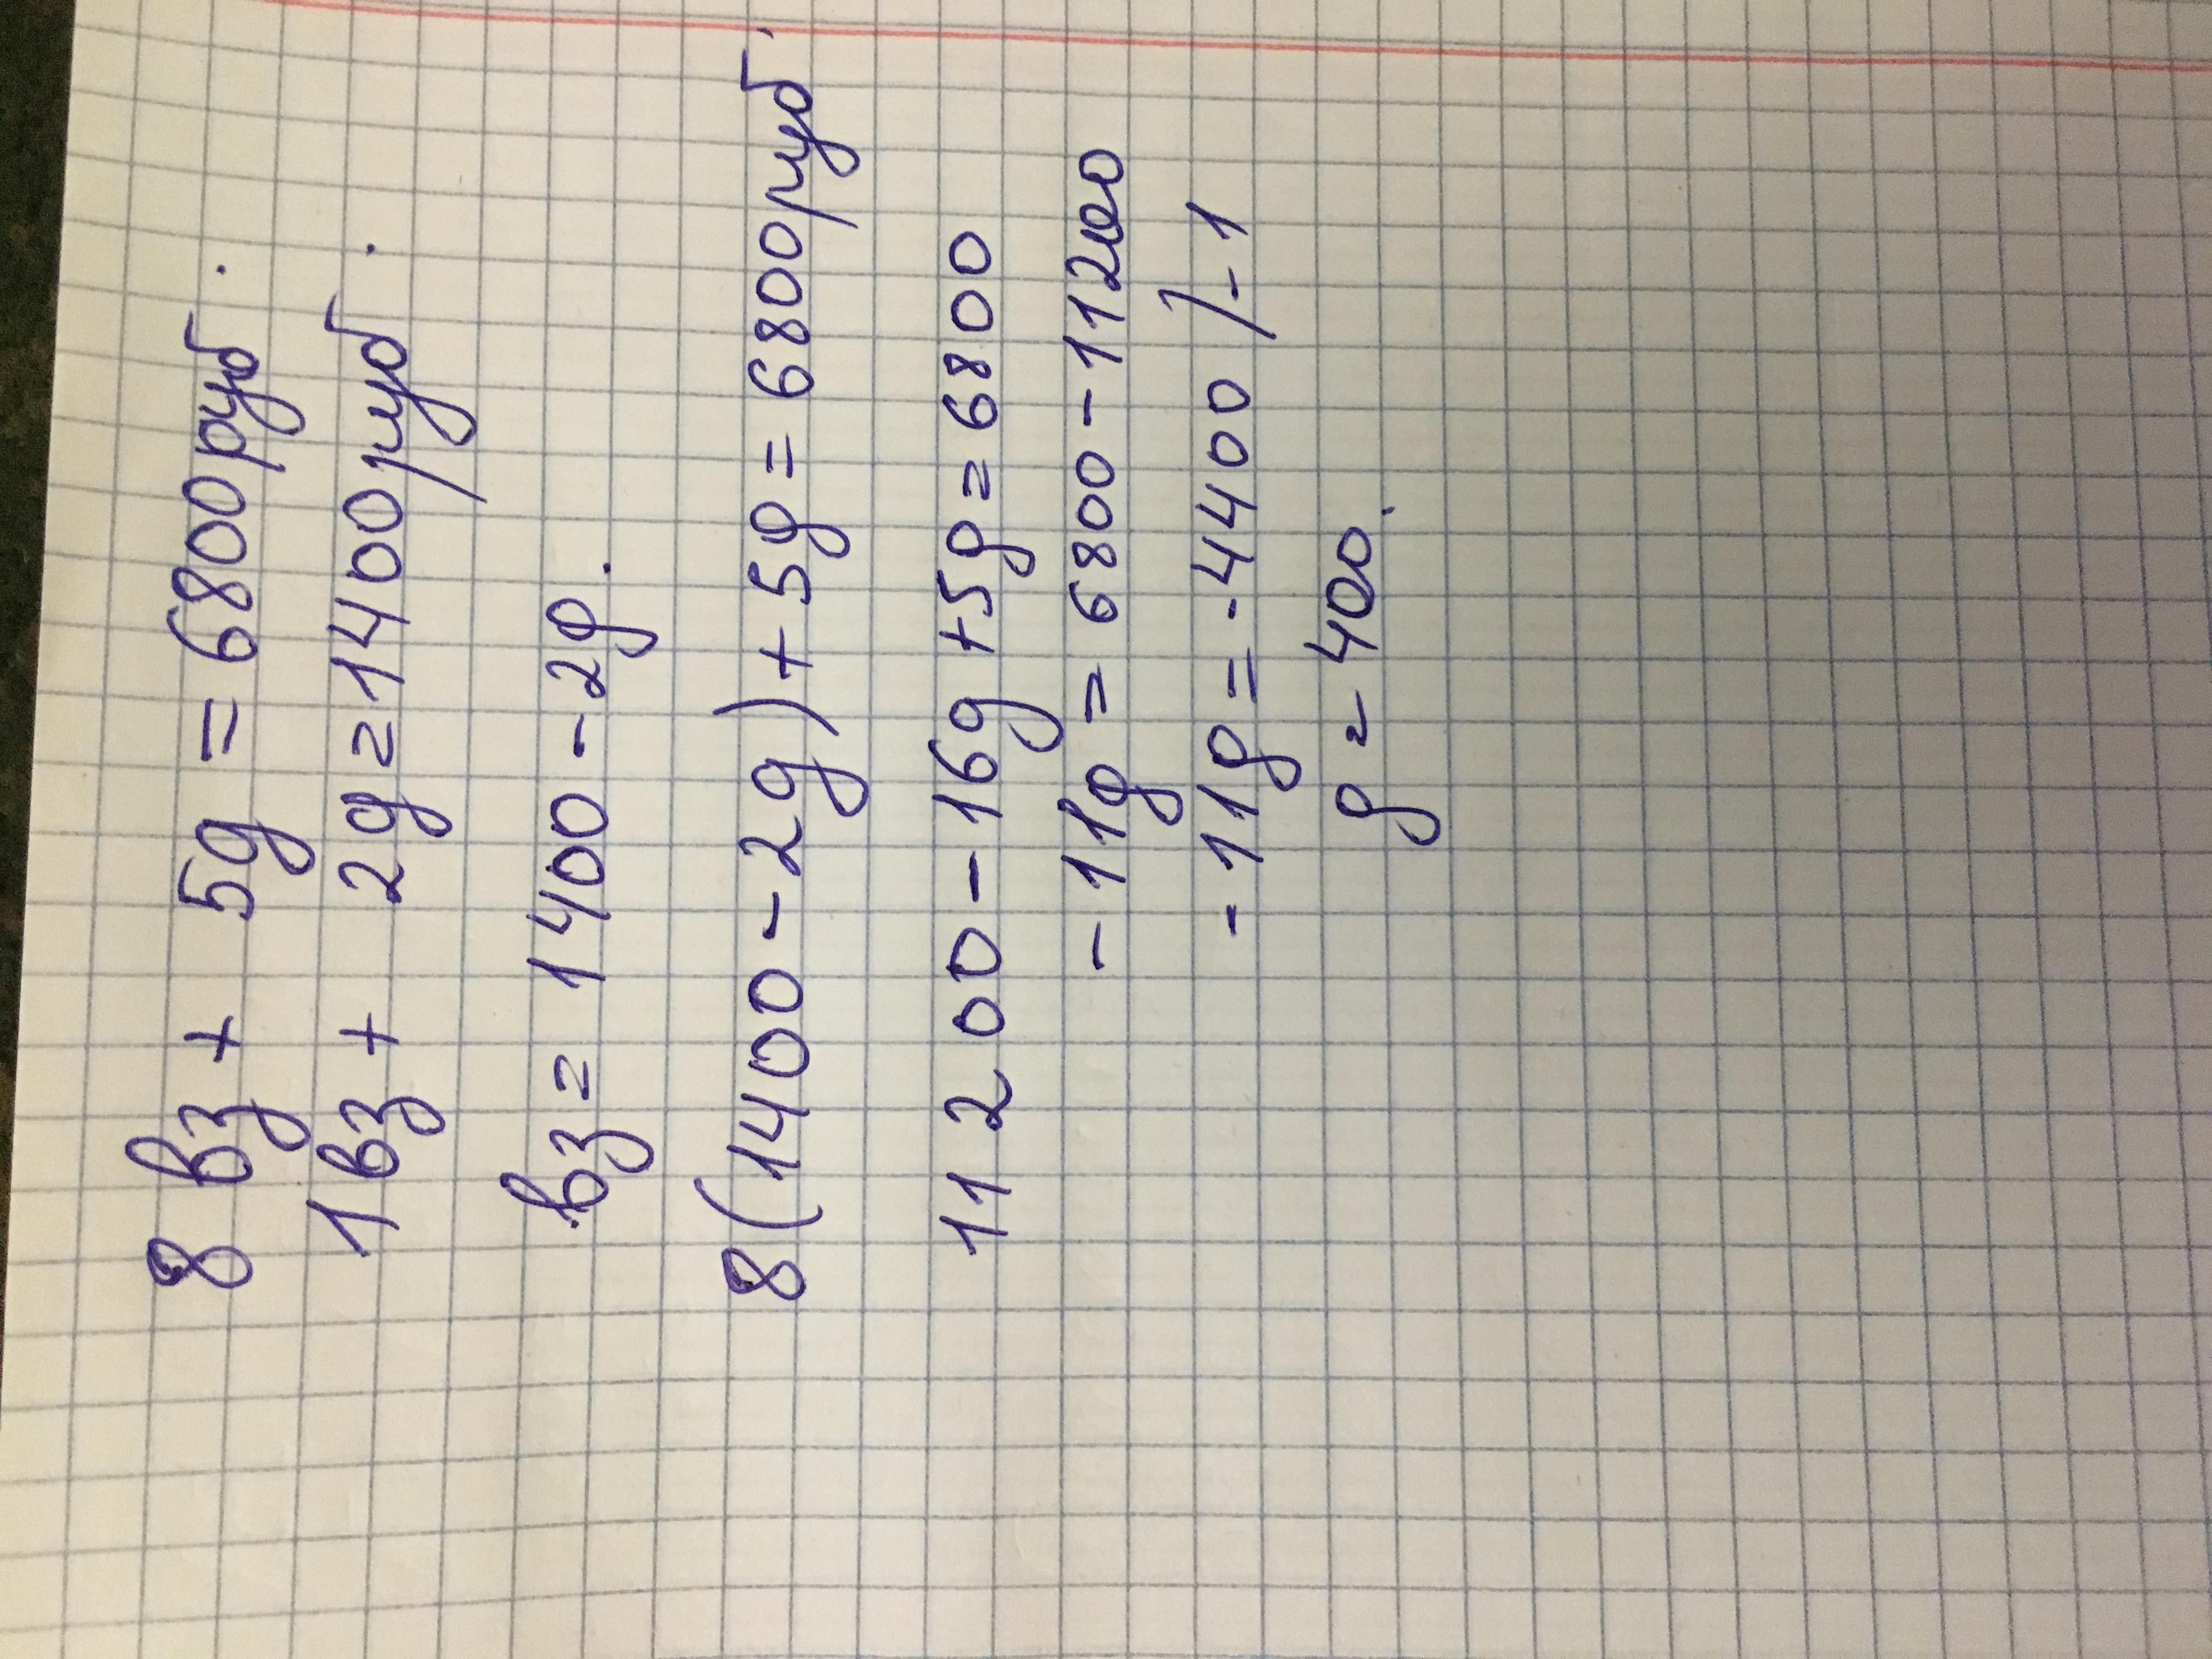 8 вз + 5д = 6800 руб.
1 вз + 2д = 1400 руб.
вз = 1400 - 2д.
8(1400 - 2д) + 5д = 6800 руб.
11200 - 16д + 5д = 6800
- 11д = 6800 - 11200
- 11д = - 4400 / - 1
д = 400.